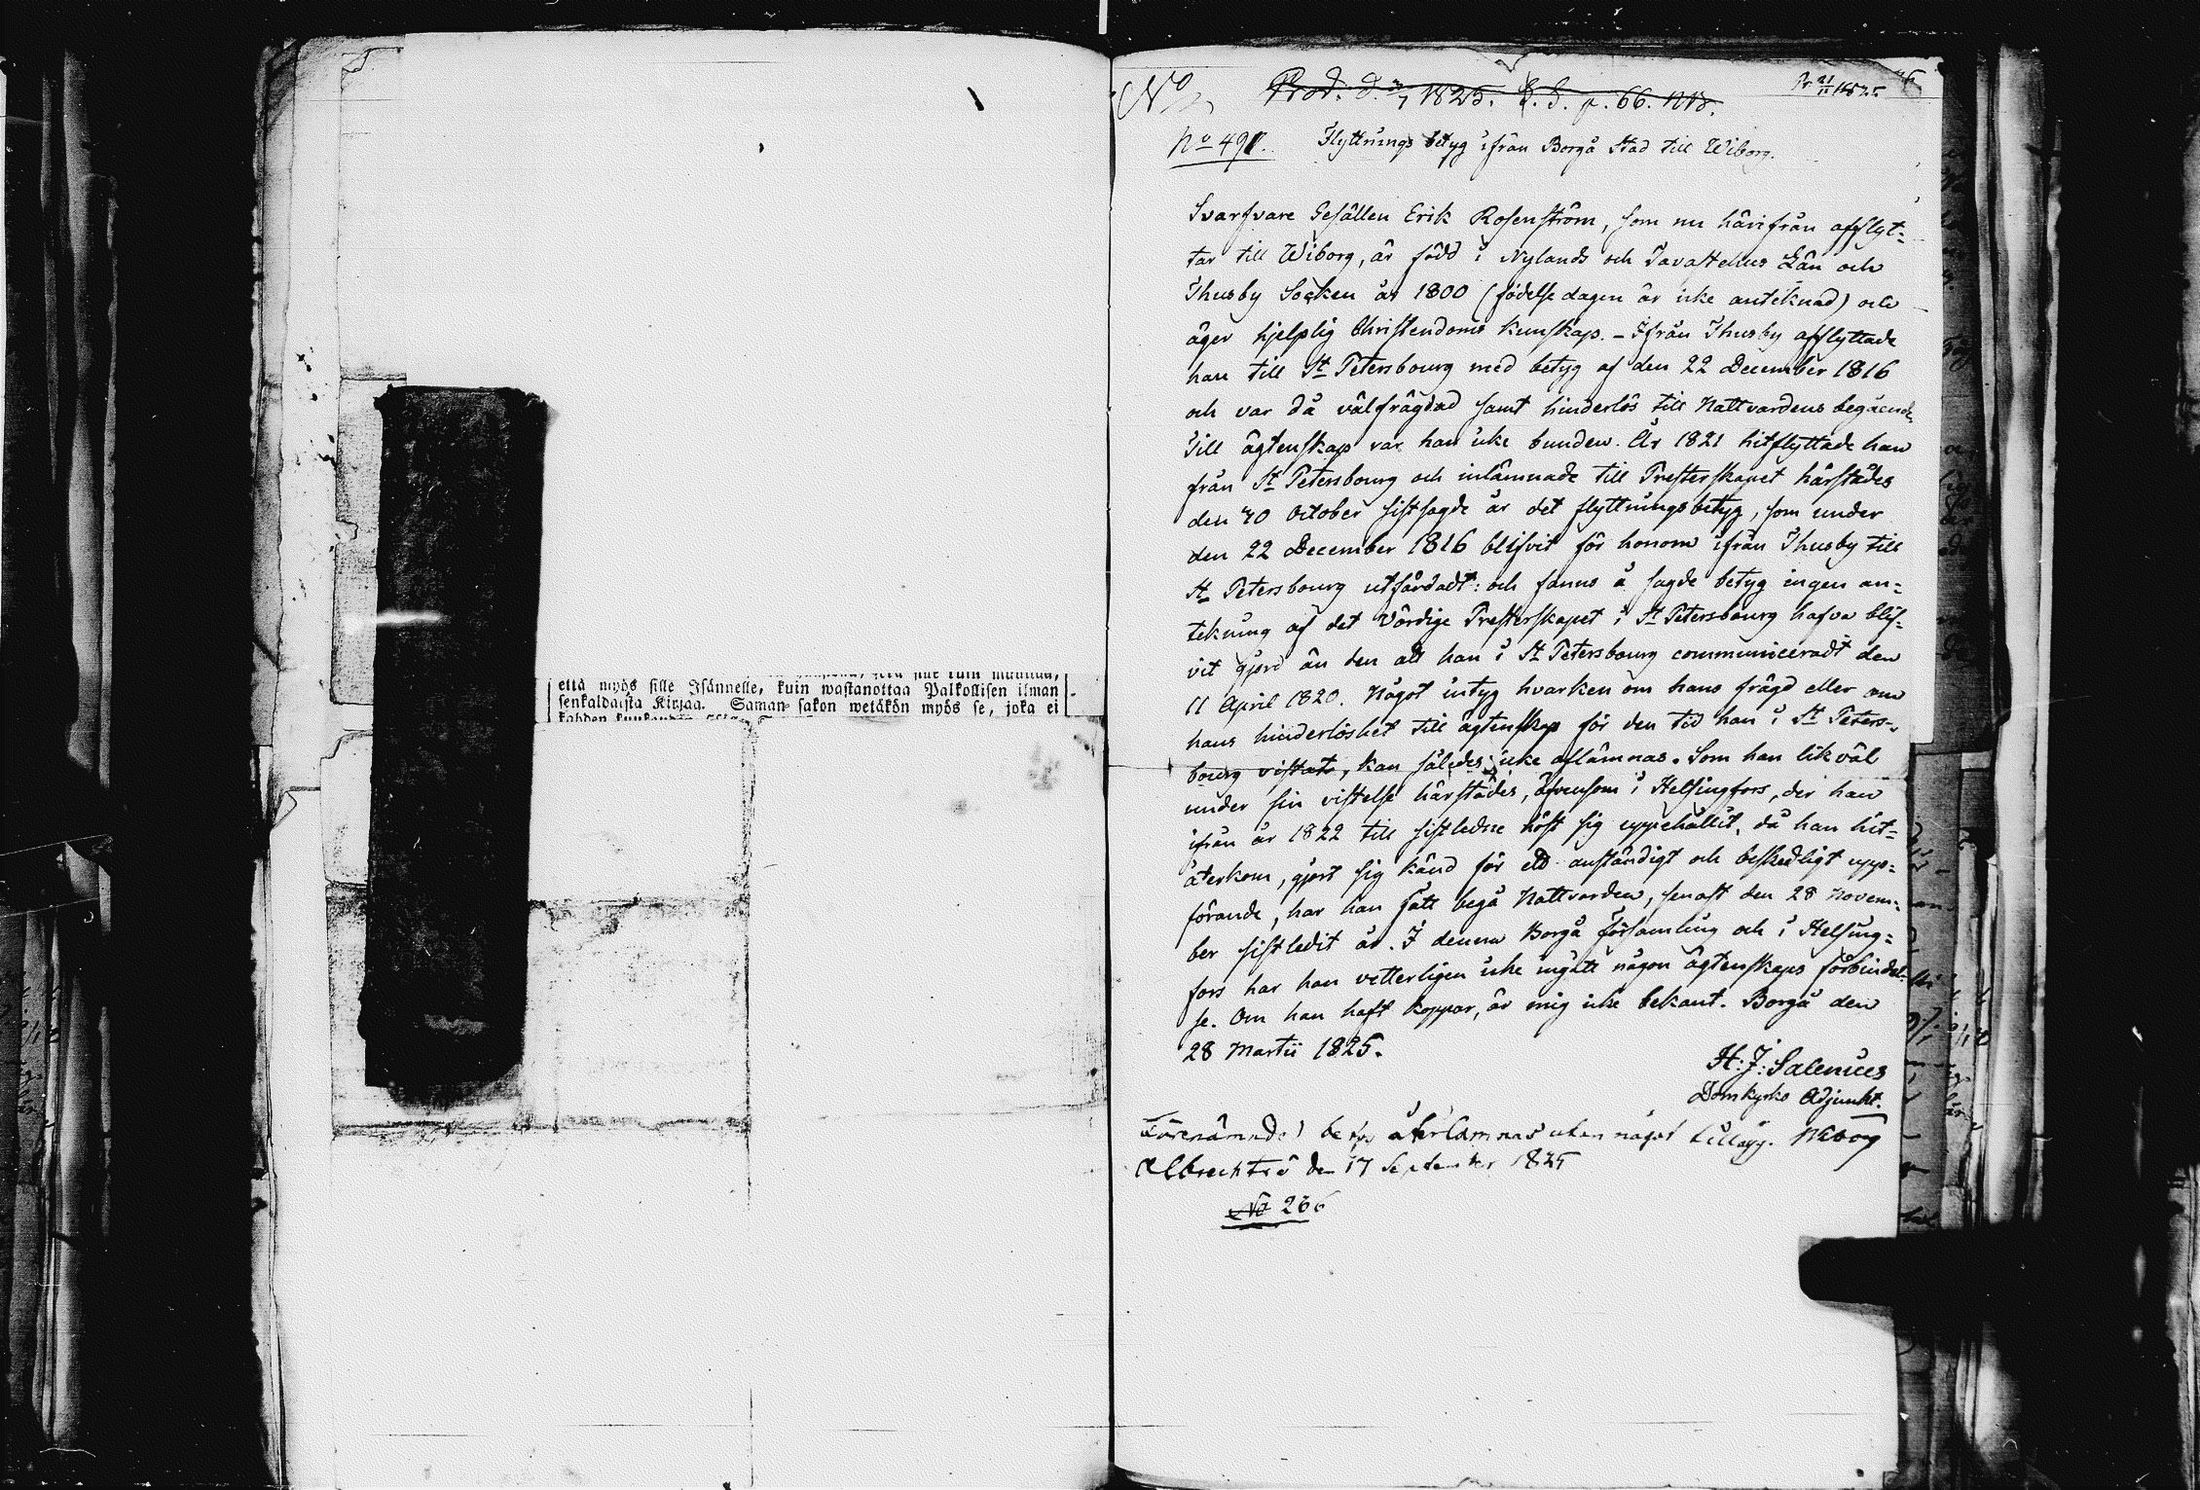 että myös sille Isännelle, kuin wastanottaa Palkollisen ilman
senkaldaista Kirjaa. Saman sakon wetäkön myös se, joka ei
No
Prod. d. 3/7 1825. L. S. p. 66. NB.
Pr 21/11 1825
No 491.
Flyttnings betyg ifrån Borgå Stad till Wiborg.
Svarfvare Gesällen Erik Rosenström, som nu härifrån afflyt-
tar till Wiborg, är född i Nylands och Tavastehus Län och
Thusby Socken år 1800 (födelse dagen är icke anteknad) och
äger hjelplig Christendoms kunskap. – Ifrån Thusby afflyttade
han till St Petersbourg med betyg af den 22 December 1816
och var då välfrägdad samt hinderlös till Nattvardens begående
Till ägtenskap var han icke bunden. År 1821 hitflyttade han
från St Petersbourg och inlämnade till Presterskapet härstädes
den 30 October sistsagde år det flyttningsbetyg, som under
den 22 December 1816 blifvit för honom ifrån Thusby till
St Petersbourg utfärdadt: och fanns å sagde betyg ingen an-
tekning af det Vördige Presterskapet i St Petersbourg hafva blif-
vit gjord än den att han i St Petersbourg communiceradt den
11 April 1820. Något intyg hvarken om hans frägd eller om
hans hinderlöshet till ägtenskap för den tid han i St Peters-
bourg vistats, kan således icke aflämnas. Som han likväl
under sin vistelse härstädes, äfvensom i Helsingfors, der han
ifrån år 1822 till sistledne höst sig uppehållit, då han hit-
återkom, gjort sig känd för ett anständigt och beskedligt upp-
förande, har han fått begå Nattvarden, senast den 28 Novem-
ber sistledit år. I denna Borgå församling och i Helsing-
fors har han vetterligen icke ingått någon ägtenskaps förbindel-
se. Om han haft koppor, är mig icke bekant. Borgå den
28 Martii 1825.
H: J: Salenius
Domkyrko Adjunkt.
Förenämnde betyg återlämnas utan något tillägg. Wiborg
den 17 September 1825
No 266